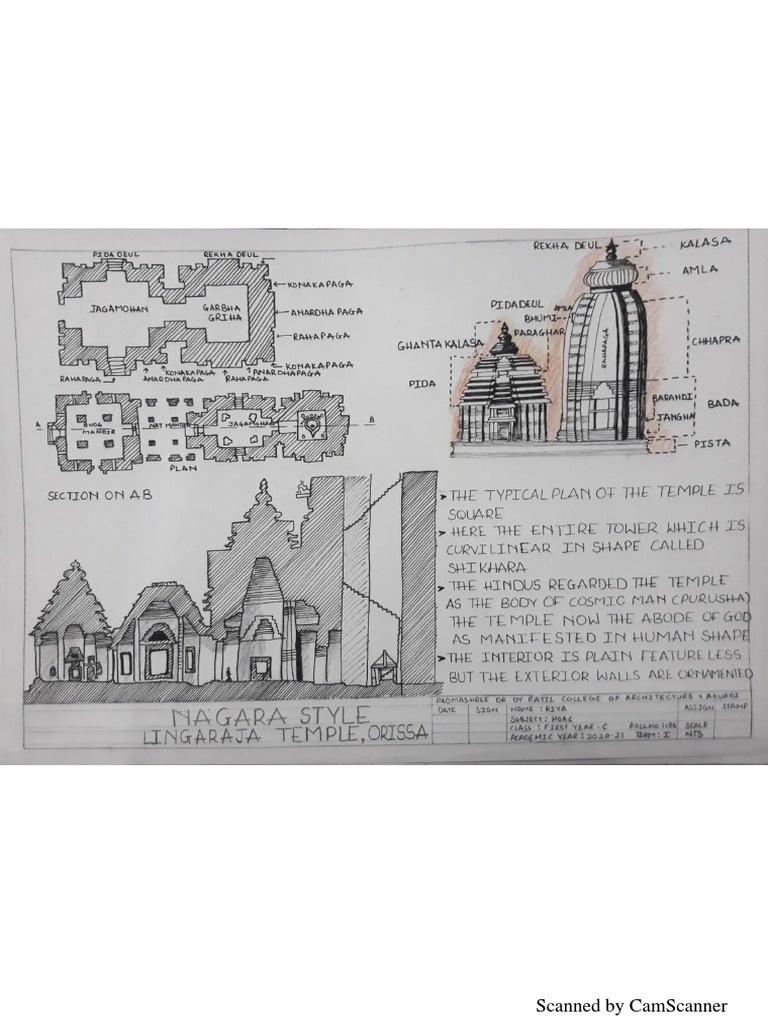 PIDA DEUL
REKHA DEUL
JAGAMOHAN
GARBHA
GRIHA
KONAKA PAGA
ANARDHA PAGA
RAHAPAGA
KONAKAPAGA
ANARDHAPAGA
RAHAPAGA
KONAKAPAGA
ANARDHA PAGA
RAHAPAGA
A
BHOG
MANDIR
NAT MANDIR
JAGAMOHAN
B
PLAN
SECTION ON AB
REKHA DEUL
KALASA
AMLA
PIDADEUL
AMLA
BHUMI
PARAGHAR
GHANTA KALASA
RAHAPAGA
CHHAPRA
PIDA
BARANDI
BADA
JANGHA
PISTA
➤ THE TYPICAL PLAN OF THE TEMPLE IS
SQUARE
➤ HERE THE ENTIRE TOWER WHICH IS
CURVILINEAR IN SHAPE CALLED
SHIKHARA
➤ THE HINDUS REGARDED THE TEMPLE
AS THE BODY OF COSMIC MAN (PURUSHA)
THE TEMPLE NOW THE ABODE OF GOD
AS MANIFESTED IN HUMAN SHAPE
➤ THE INTERIOR IS PLAIN FEATURE LESS
BUT THE EXTERIOR WALLS ARE ORNAMENTED
NAGARA STYLE
LINGARAJA TEMPLE, ORISSA
PADMASHREE DR DY PATIL COLLEGE OF ARCHITECTURE, AKURDI
DATE
SIGN
NAME : RIYA
ASSIGN
STAMP
SUBJECT : HOAC
CLASS : FIRST YEAR - C
ROLL NO : 186
SCALE
ACADEMIC YEAR : 2020-21
TEAM : I
NTS
Scanned by CamScanner